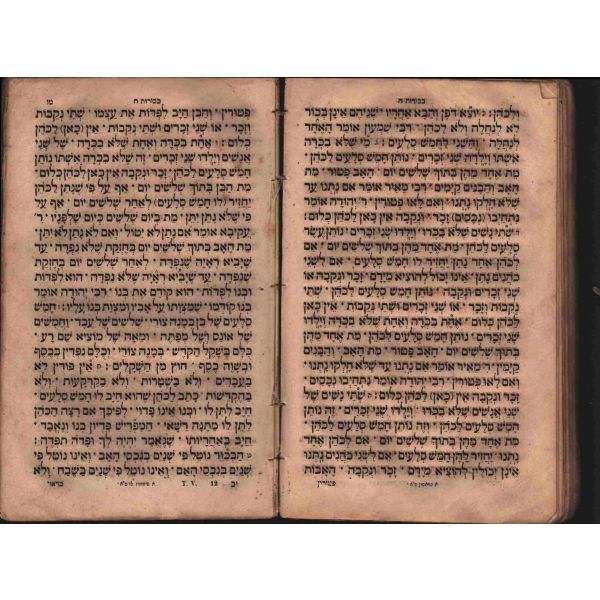 בכורות ח
ולכהן : יוצא דפן והבא אחריו שניהם אינן בכור
לא לנחלה ולא לכהן · רבי שמעון אומר האחד
לנחלה והשני לחמש סלעים : מי שלא בכרה
אשתו וילדה שני זכרים · נותן חמש סלעים לכהן ·
מת אחד מהן בתוך שלשים יום האב פטור · מת
האב והבנים קימים · רבי מאיר אומר אם נתנו עד
שלא חלקו נתנו ואם לאו פטורין · רבי יהודה אומר
נתחיבו (נכסים) זכר ונקבה אין כאן לכהן כלום :
שתי נשים שלא בכרו וילדו שני זכרים · נותן עשר
סלעים לכהן · מת אחד מהן בתוך שלשים יום אם
לכהן אחד נתן יחזיר לו חמש סלעים · אם לשני
כהנים נתן · אינו יכול להוציא מידם · זכר ונקבה או
שני זכרים ונקבה · נותן חמש סלעים לכהן · שתי
נקבות וזכר או שני זכרים ושתי נקבות · אין כאן
לכהן כלום · אחת בכרה ואחת שלא בכרה וילדו
שני זכרים · נותן חמש סלעים לכהן · מת אחד מהן
בתוך שלשים יום · האב פטור · מת האב · והבנים
קימין · ר׳ מאיר אומר אם נתנו עד שלא חלקו נתנו
ואם לאו פטורין · רבי יהודה אומר נתחיבו נכסים ·
זכר ונקבה אין כאן לכהן כלום : שתי נשים של
שני אנשים שלא בכרו · וילדו שני זכרים · זה נותן
חמש סלעים לכהן · וזה נותן חמש סלעים לכהן ·
מת אחד מהן בתוך שלשים יום · אם לכהן אחד
נתנו · יחזיר להן חמש סלעים · אם לשני כהנים נתנו
אינן יכולין להוציא מידם · זכר ונקבה · האבות
פטורין
בכורות ח
מו
פטורין · והבן חיב לפדות את עצמו · שתי נקבות
וזכר · או שני זכרים ושתי נקבות · אין (כאן) לכהן
כלום : אחת בכרה ואחת שלא בכרה · של שני
אנשים וילדו שני זכרים · זה שלא בכרה אשתו נותן
חמש סלעים לכהן · זכר ונקבה אין כאן לכהן כלום
מת הבן בתוך שלשים יום · אף על פי שנתן לכהן
יחזיר (לו חמש סלעים) לאחר שלשים יום · אף על
פי שלא נתן יתן · מת ביום שלשים כיום שלפניו · ר׳
עקיבא אומר אם נתן לא יטול ואם לא נתן לא יתן ·
מת האב בתוך שלשים יום בחזקת שלא נפדה · עד
שיביא ראיה שנפדה · לאחר שלשים יום בחזקת
שנפדה · עד שיביא ראיה שלא נפדה · הוא לפדות
ובנו לפדות · הוא קודם את בנו · רבי יהודה אומר
בנו קודמו · שמצותו על אביו ומצות בנו עליו : חמש
סלעים של בן במנה צורי · שלשים של עבד · וחמשים
של אונס ושל מפתה · ומאה של מוציא שם רע ·
כלם בשקל הקדש · במנה צורי · וכלם נפדין בכסף
ובשוה כסף · חוץ מן השקלים : אין פודין לא
בעבדים · ולא בשטרות · ולא בקרקעות · ולא
בהקדשות · כתב לכהן שהוא חיב לו חמש סלעים
חיב לתן לו · ובנו אינו פדוי · לפיכך אם רצה הכהן
לתן לו מתנה רשאי · המפריש פדיון בנו ונאבד ·
חיב באחריותו · שנאמר יהיה לך · ופדה תפדה :
הבכור נוטל פי שנים בנכסי האב · ואינו נוטל פי
שנים בנכסי האם · ואינו נוטל פי שנים בשבח · ולא
יב 12 T. V.
בראוי